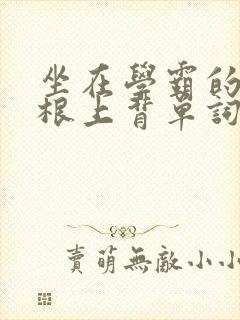 坐在學霸的
根上背單詞
賣萌無敵小小